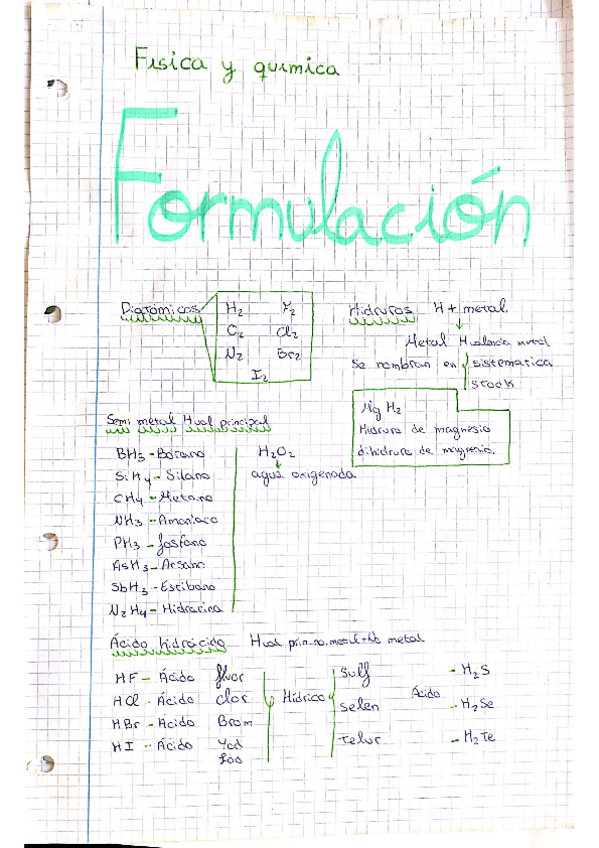 Fisica y quimica
Formulación
Diatómicos
H2 F2
O2 Cl2
N2 Br2
I2
Hidruros H + metal
Metal H valencia metal
Se nombran en sistematica
stock
Mg H2
Hidruro de magnesio
dihidruro de magnesio.
Semi metal Hval principal
BH3 - Borano
SiH4 - Silano
CH4 - Metano
NH3 - Amoniaco
PH3 - fosfano
AsH3 - Arsano
SbH3 - Estibano
N2H4 - Hidracina
H2O2
agua oxigenada
Ácido hidrácido
HF - Ácido fluor
HCl - Ácido clor
HBr - Ácido Brom
HI - Ácido Yod
Hídrico
Sulf
Selen
Telur
Ácido
- H2S
- H2Se
- H2Te